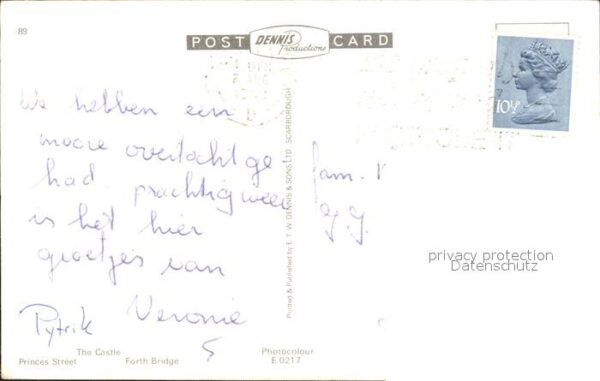 89
POST DENNIS Productions CARD
10½P
We hebben een
mooie overtocht ge-
had. prachtig weer
is het hier
groetjes van
Pytrik Veronie
5
fam.
Printed & Published by E. T. W. DENNIS & SONS LTD. SCARBOROUGH
privacy protection
Datenschutz
The Castle
Princes Street Forth Bridge
Photocolour
E 0217